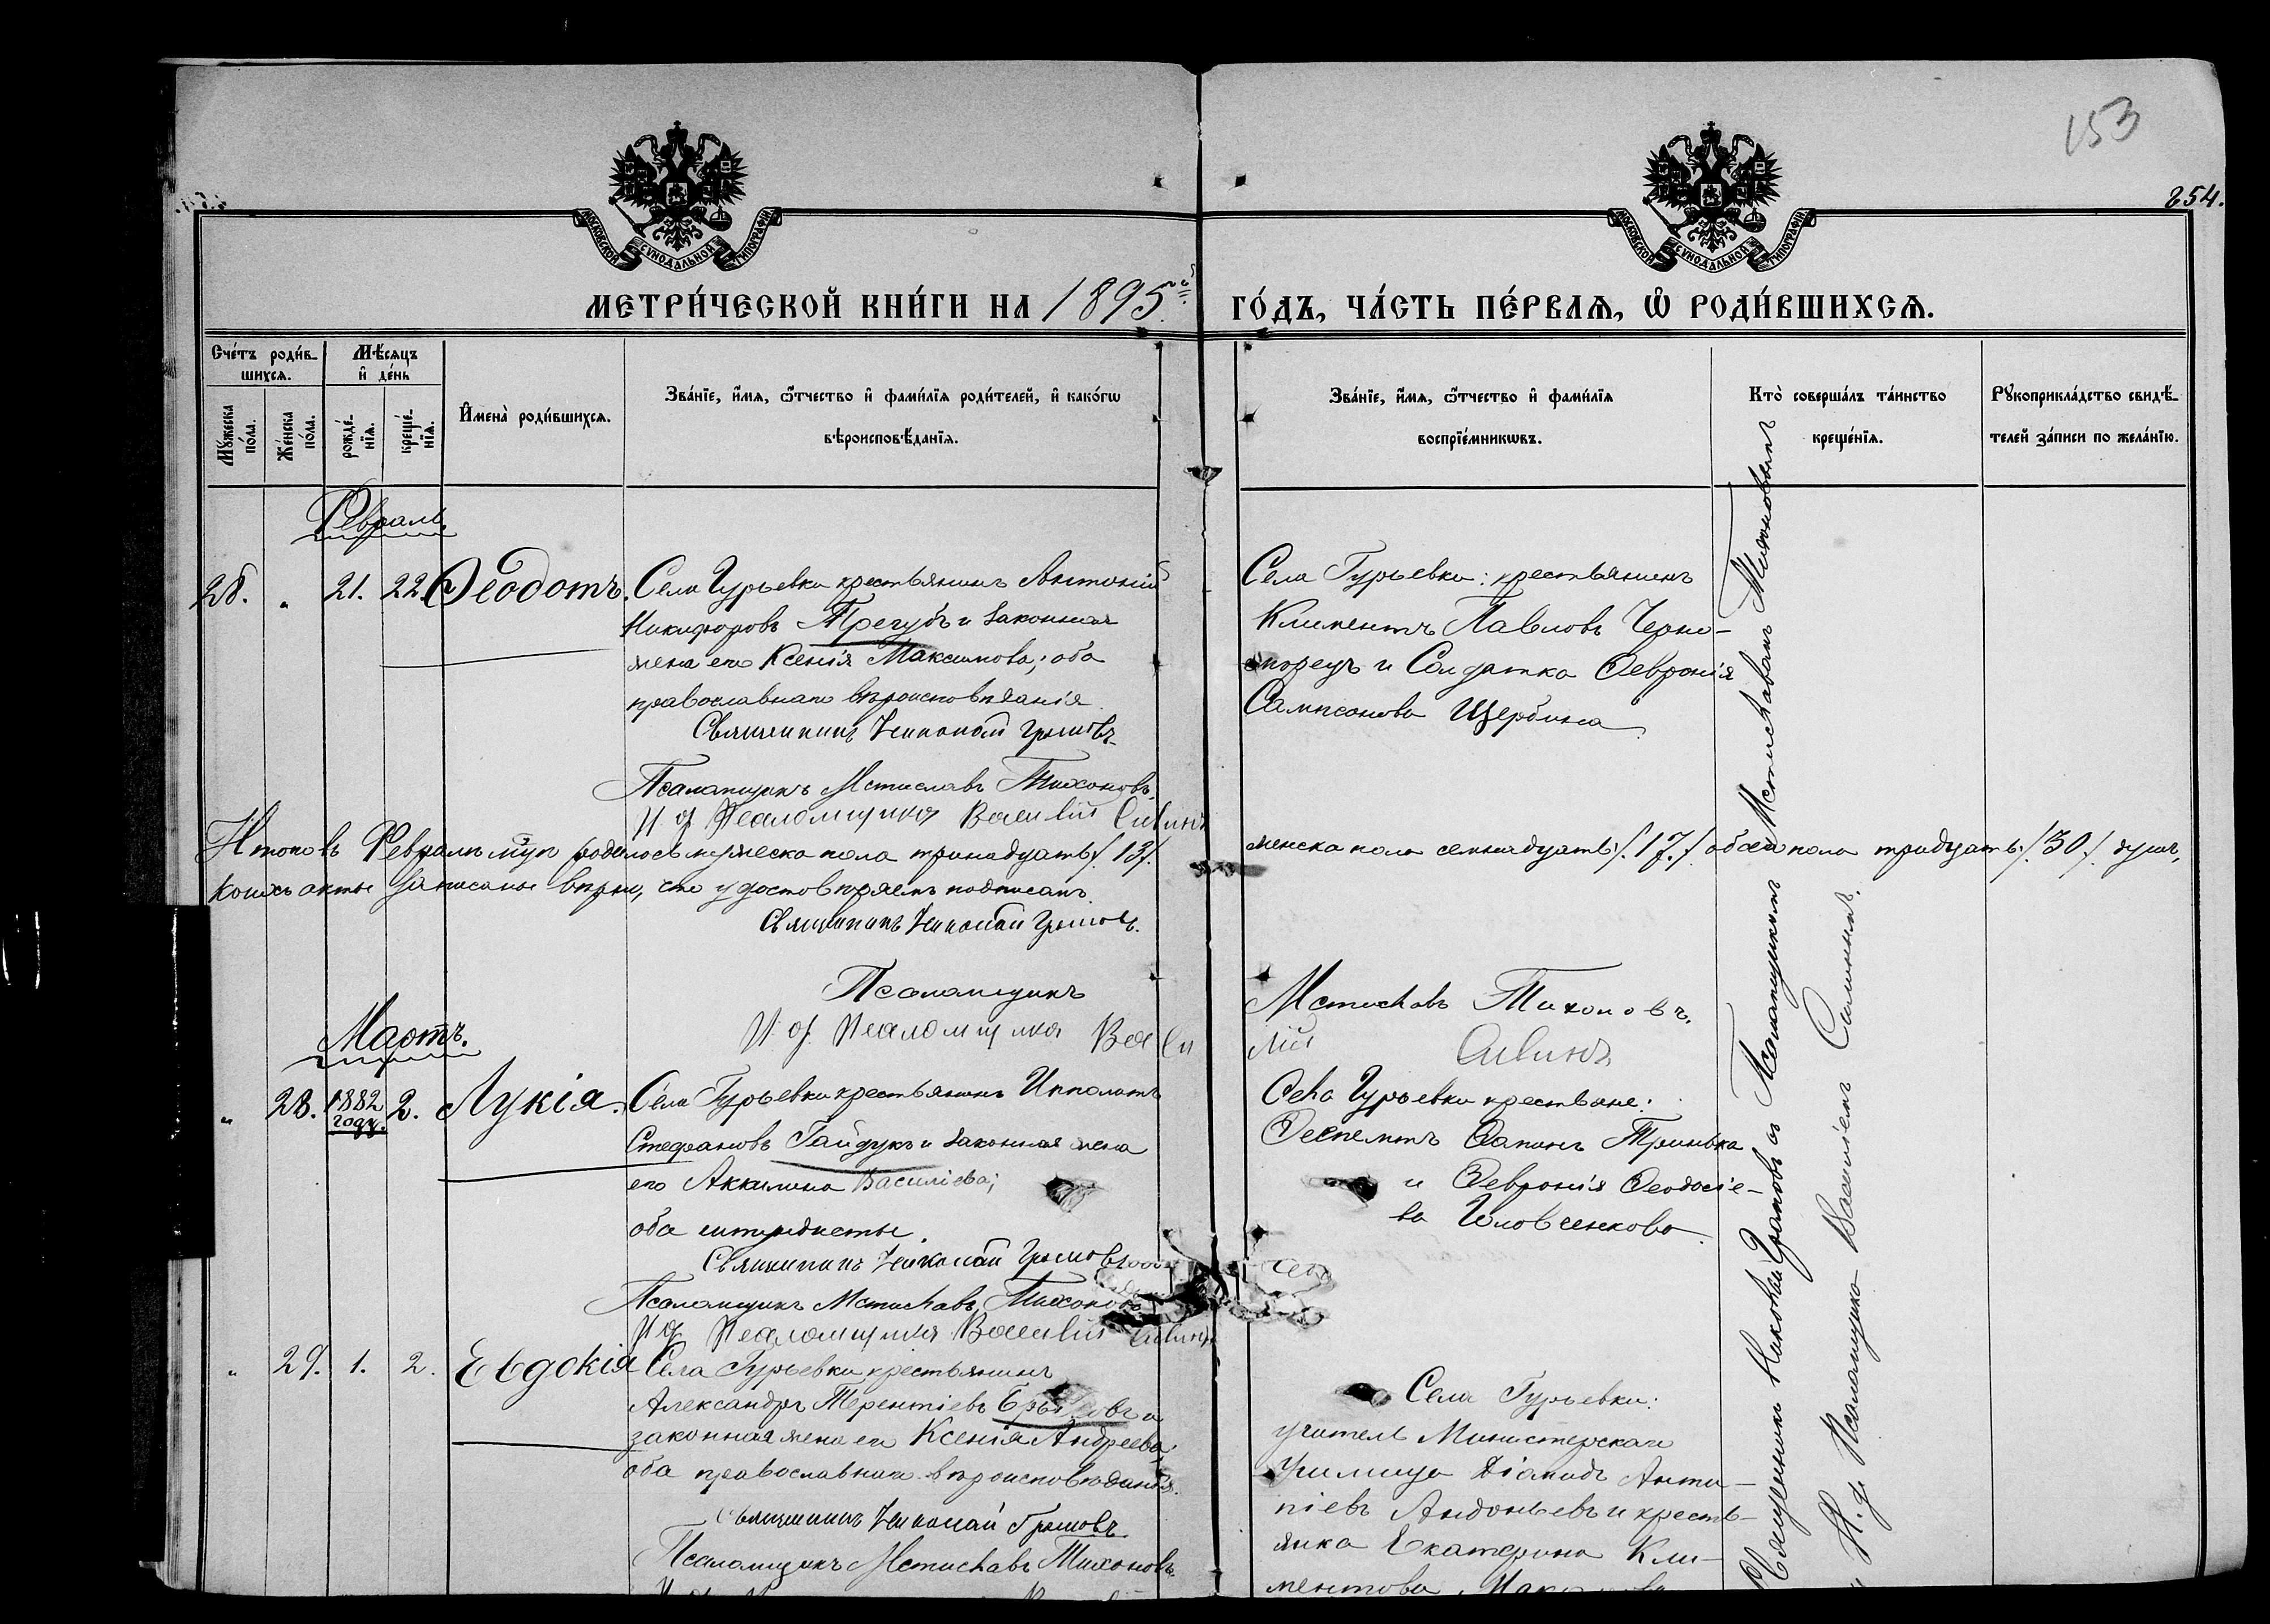 153
254.
МОСКОВСКОЙ СѴНОДАЛЬНОЙ ТИПОГРАФІИ
МОСКОВСКОЙ СѴНОДАЛЬНОЙ ТИПОГРАФІИ
МЕТРИ́ЧЕСКОЙ КНИ́ГИ НА 1895й ГО́ДЪ, ЧА́СТЬ ПЕ́РВАѦ, Ѽ РОДИ́ВШИХСѦ.
Сче́тъ роди́в-
шихсѧ.
Мꙋжеска по́ла.
Же́нска по́ла.
Мѣ́сѧцъ
и҆ де́нь
рожде́-
нїѧ.
креще́-
нїѧ.
И҆мена̀ роди́вшихсѧ.
Зва́нїе, и҆́мѧ, ѻ҆́тчество и҆ фами́лїѧ роди́телей, и҆ како́гѡ
вѣроисповѣ́данїѧ.
Зва́нїе, и҆́мѧ, ѻ҆́тчество и҆ фами́лїѧ
воспрїе́мникѡвъ.
Кто̀ соверша́лъ та́инство
креще́нїѧ.
Рꙋкоприкла́дство свидѣ́-
телей за́писи по жела́нїю.
Февраль.
" 21. 22. Ѳеодотъ. Села Гурьевки крестьянинъ Антоній
Никифоровъ Трегубъ и законная
жена его Ксенія Максимова; оба
православнаго вѣроисповѣданія.
Священникъ Николай Громовъ
Псаломщикъ Мстиславъ Тихоновъ.
И. д. Псаломщика Василій Сивинъ
Села Гурьевки: крестьянинъ
Климентъ Павловъ Черно-
морецъ и Солдатка Февронія
Сампсонова Щербина.
Итого въ Февралѣ мцѣ родилось мужеска пола тринадцать /.13/. женска пола семнадцать /.17./ обоего пола тридцать /.30./ душъ,
коихъ акты записаны вѣрно, что и удостовѣряемъ подписомъ.
Священникъ Николай Громовъ.
Псаломщикъ Мстиславъ Тихоновъ.
И. д. Псаломщика Василій Сивинъ
Мартъ.
" 28. 1882 году. 2. Лукія. Села Гурьевки крестьянинъ Ипполитъ
Стефановъ Гайдукъ и законная жена
его Аккилина Василіева;
оба штундисты.
Священникъ Николай Громовъ
Псаломщикъ Мстиславъ Тихоновъ
И. д. Псаломщика Василій Сивинъ
Села Гурьевки крестьяне:
и Февронія Ѳеодосіе-
ва Головченкова.
" 29. 1. 2. Евдокія Села Гурьевки крестьянинъ
Александръ Терентіевъ и
законная жена его Ксенія Андреева;
оба православнаго вѣроисповѣданія.
Священникъ Николай Громовъ
Псаломщикъ Мстиславъ Тихоновъ.
Села Гурьевки:
учитель Министерскаго
Училища Діомидъ Анти-
піевъ Андоньевъ и кресть-
янка Екатерина Кли-
ментова
Священникъ Николай Громовъ съ Псаломщикомъ Мстиславомъ Тихоновымъ
и И. д. Псаломщика Василіемъ Сивинымъ.